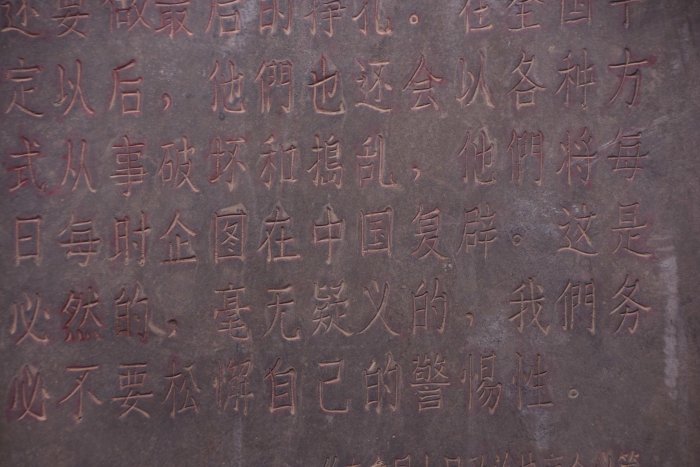 还要做最后的挣扎。在全国平
定以后，他們也还会以各种方
式从事破坏和搗乱，他們将每
日每时企图在中国复辟。这是
必然的，毫无疑义的，我們务
必不要松懈自己的警惕性。